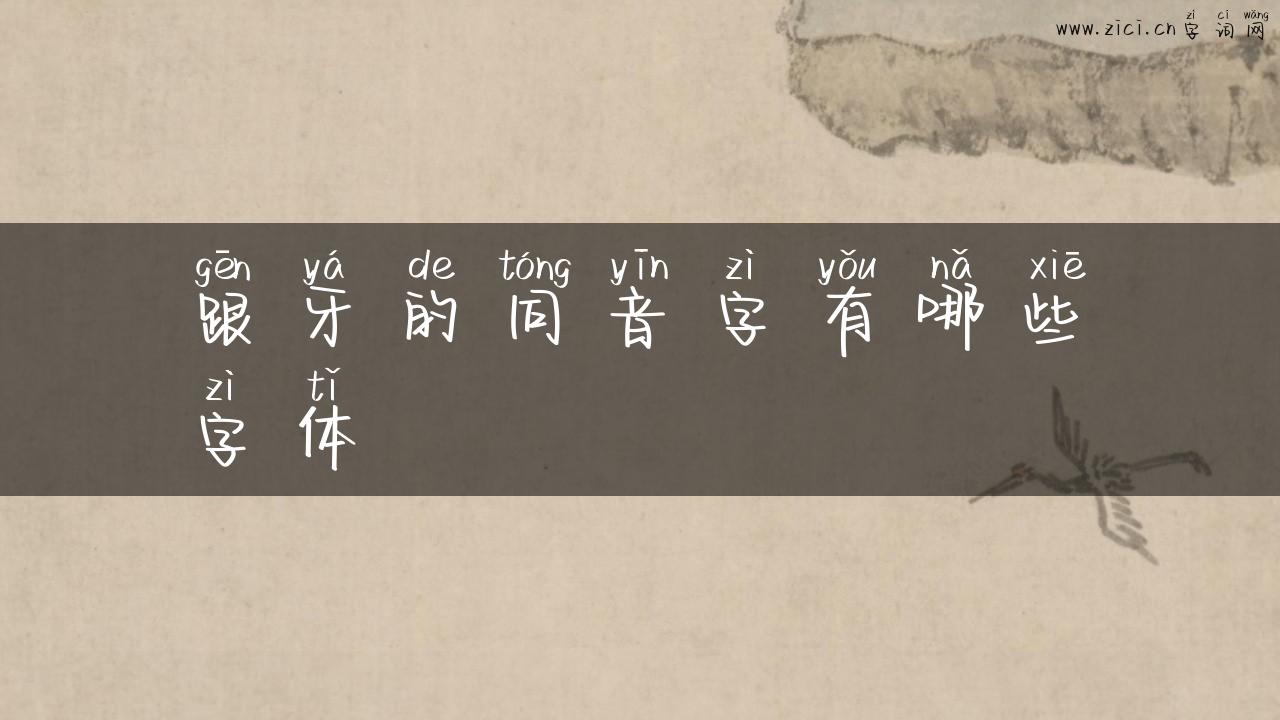 zì cí wǎng
www.zici.cn 字词网
gēn yá de tóng yīn zì yǒu nǎ xiē
跟牙的同音字有哪些
zì tǐ
字体